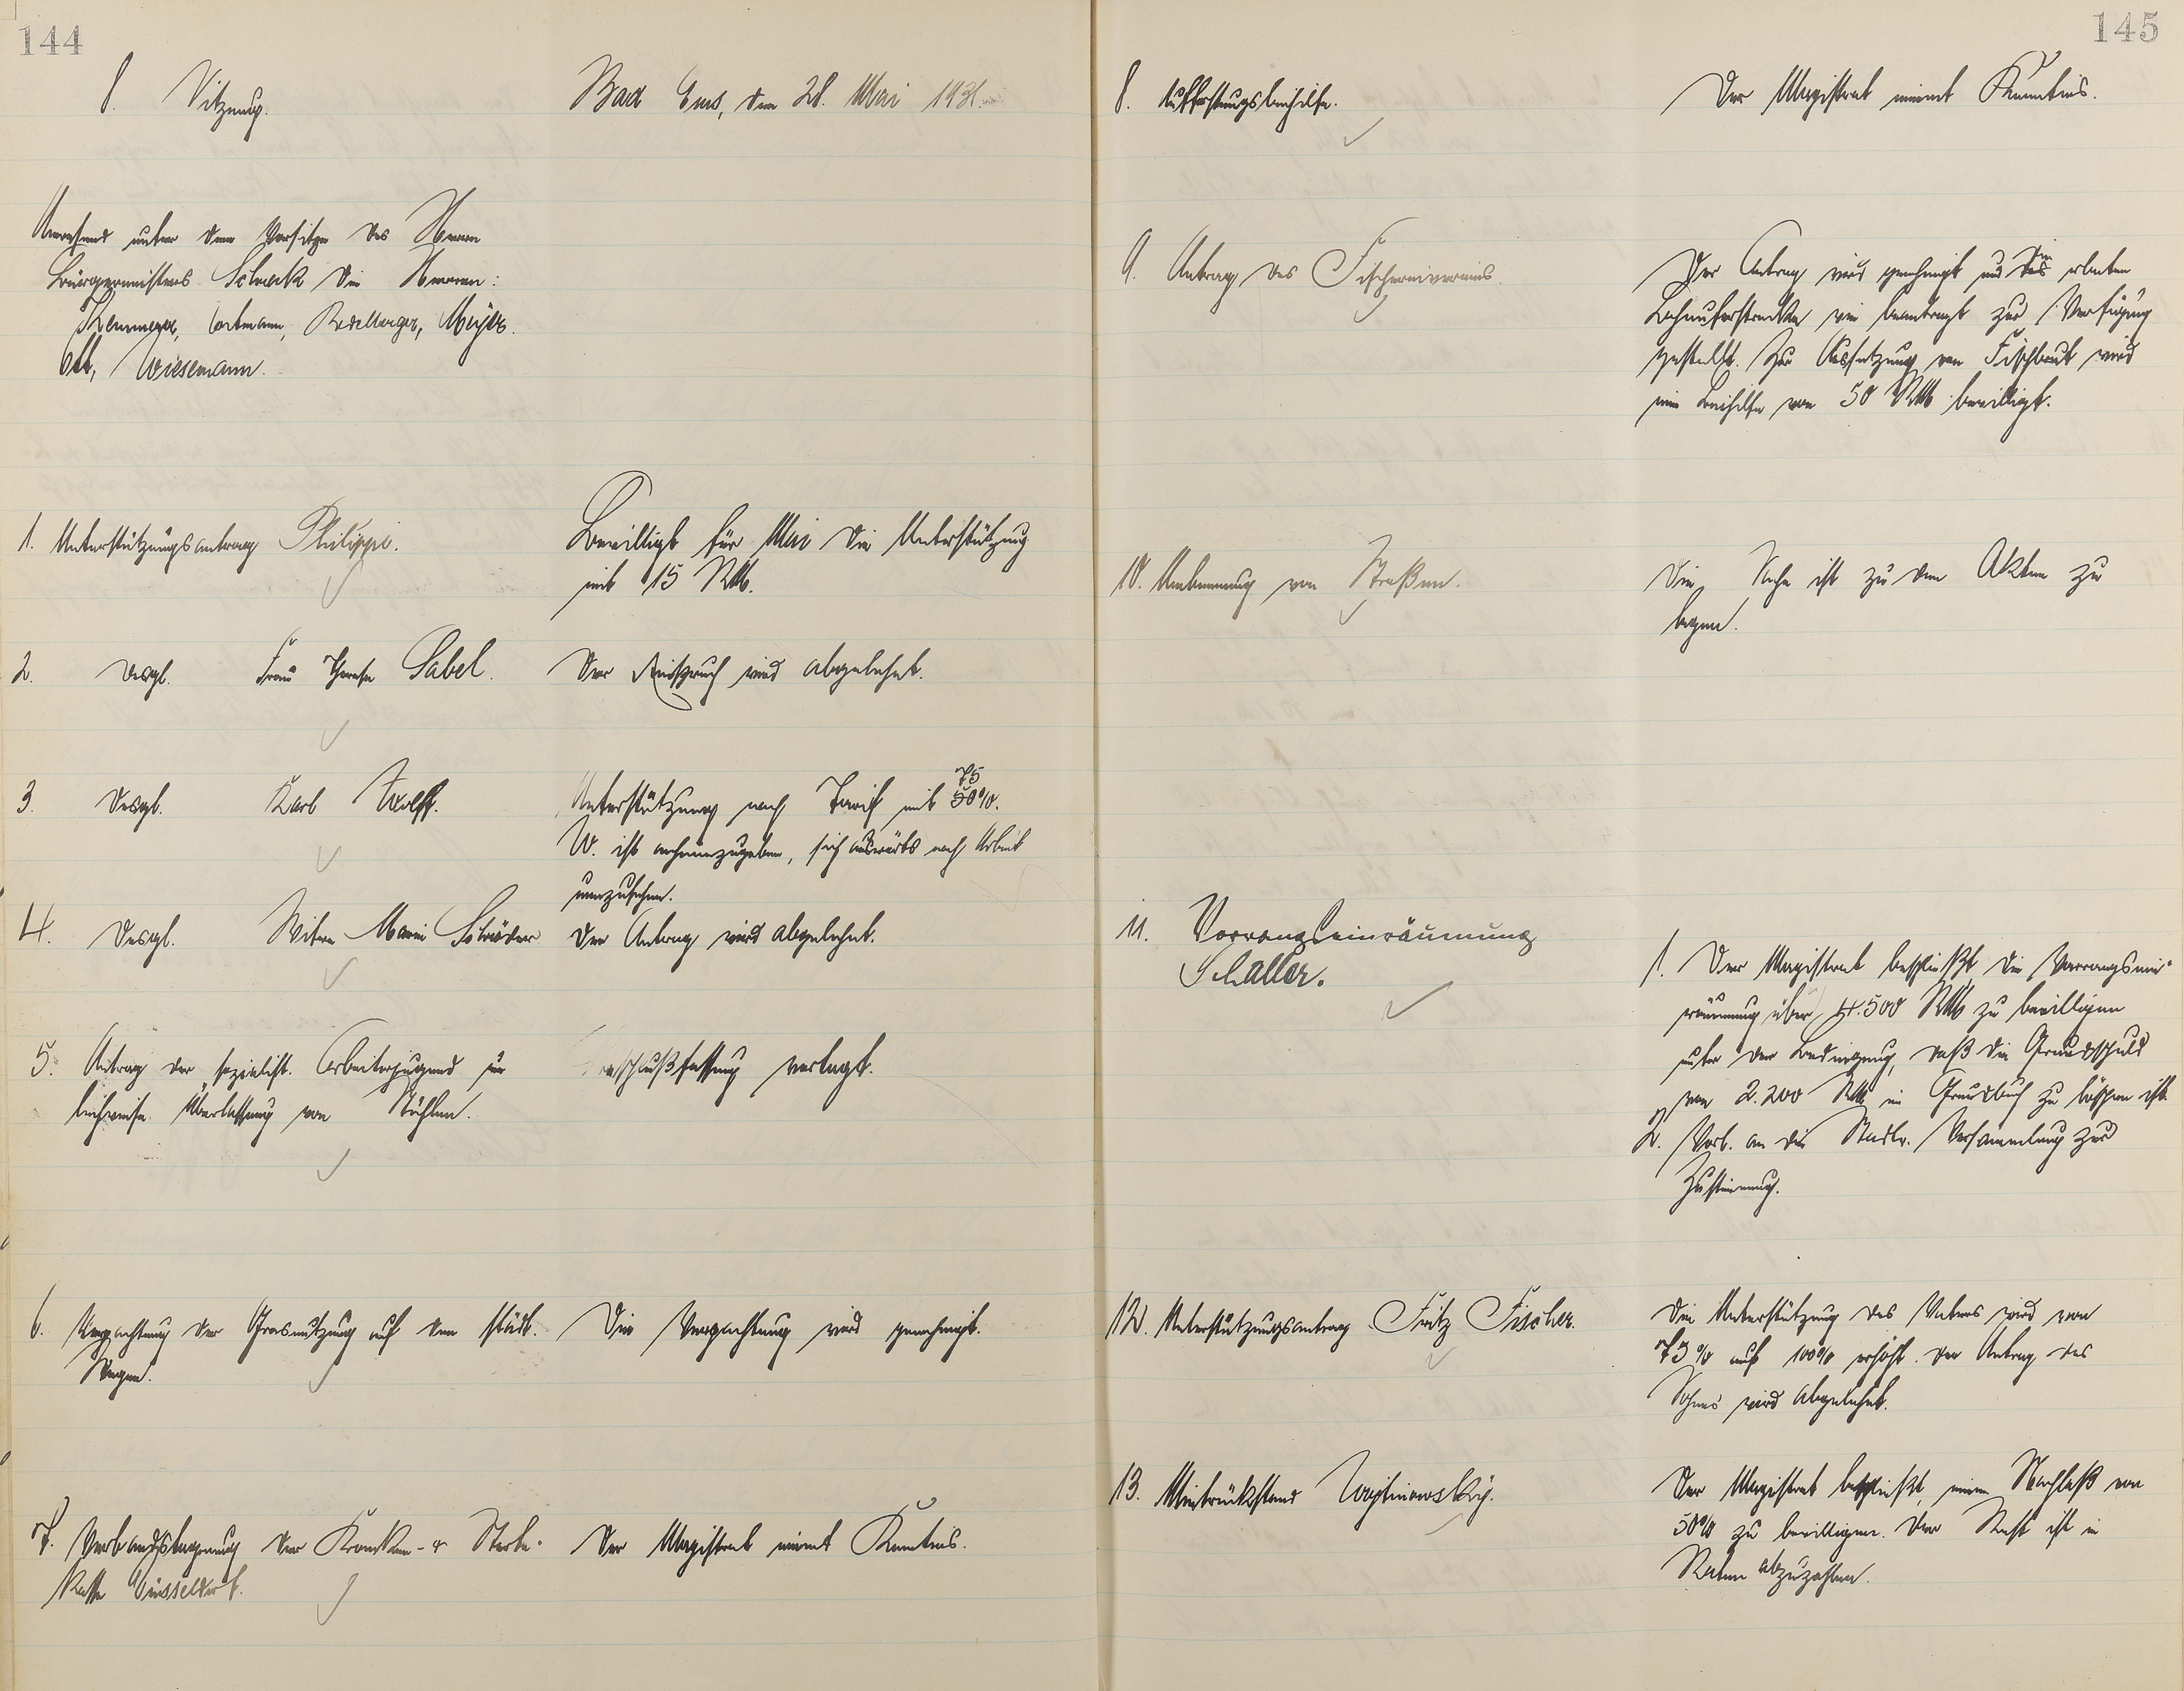 144
8. Sitzung.
Bad Ems, den 28. Mai 1931.
Anwesend unter dem Vorsitze des Herrn
Bürgermeisters Schreck die Herren:
Ortmann, Meyer.
Ott, Wiesemann.
1. Unterstützungsantrag Philippi.
Bewilligt für Mai die Unterstützung
mit 15 RM.
2. Desgl. Frau Therese Sabel.
Der Einspruch wird abgelehnt.
3. Desgl. Karl Wolff.
Unterstützung nach Tarif mit 50%.
75
W. ist anheimzugeben, sich auswärts nach Arbeit
umzusehen.
4. Desgl. Witwe Marie Schröder
Der Antrag wird abgelehnt.
5. Antrag der sozialist. Arbeiterjugend um
leihweise Überlassung von Stühlen.
Beschlußfassung vertagt.
6. Verpachtung der Grasnutzung auf den städt.
Wegen.
Die Verpachtung wird genehmigt.
7. Verbandstagung der Kranken- & Sterbe-
kasse Düsseldorf.
Der Magistrat nimmt Kenntnis.
145
8.
Der Magistrat nimmt Kenntnis.
9. Antrag des Fischereivereins.
Der Antrag wird genehmigt und die erbetene
Lahnuferstrecke wie beantragt zur Verfügung
gestellt. Zur Aussetzung von Fischbrut wird
eine Beihilfe von 50 RM bewilligt.
10. Umbenennung von Straßen.
Die Sache ist zu den Akten zu
legen.
11. Vorrangseinräumung
Schaller.
1. Der Magistrat beschließt die Vorrangsein-
räumung über 4.500 RM zu bewilligen
unter der Bedingung, daß die Grundschuld
von 2.200 RM im Grundbuch zu löschen ist.
2. Vorl. an die Stadtv. Versammlung zur
Zustimmung.
12. Unterstützungsantrag Fritz Fischer.
Die Unterstützung des Vaters wird von
75% auf 100% erhöht. Der Antrag des
Sohnes wird abgelehnt.
13. Mietrückstand Woytinowsky.
Der Magistrat beschließt, einen Nachlaß von
50% zu bewilligen. Der Rest ist in
Raten abzuzahlen.